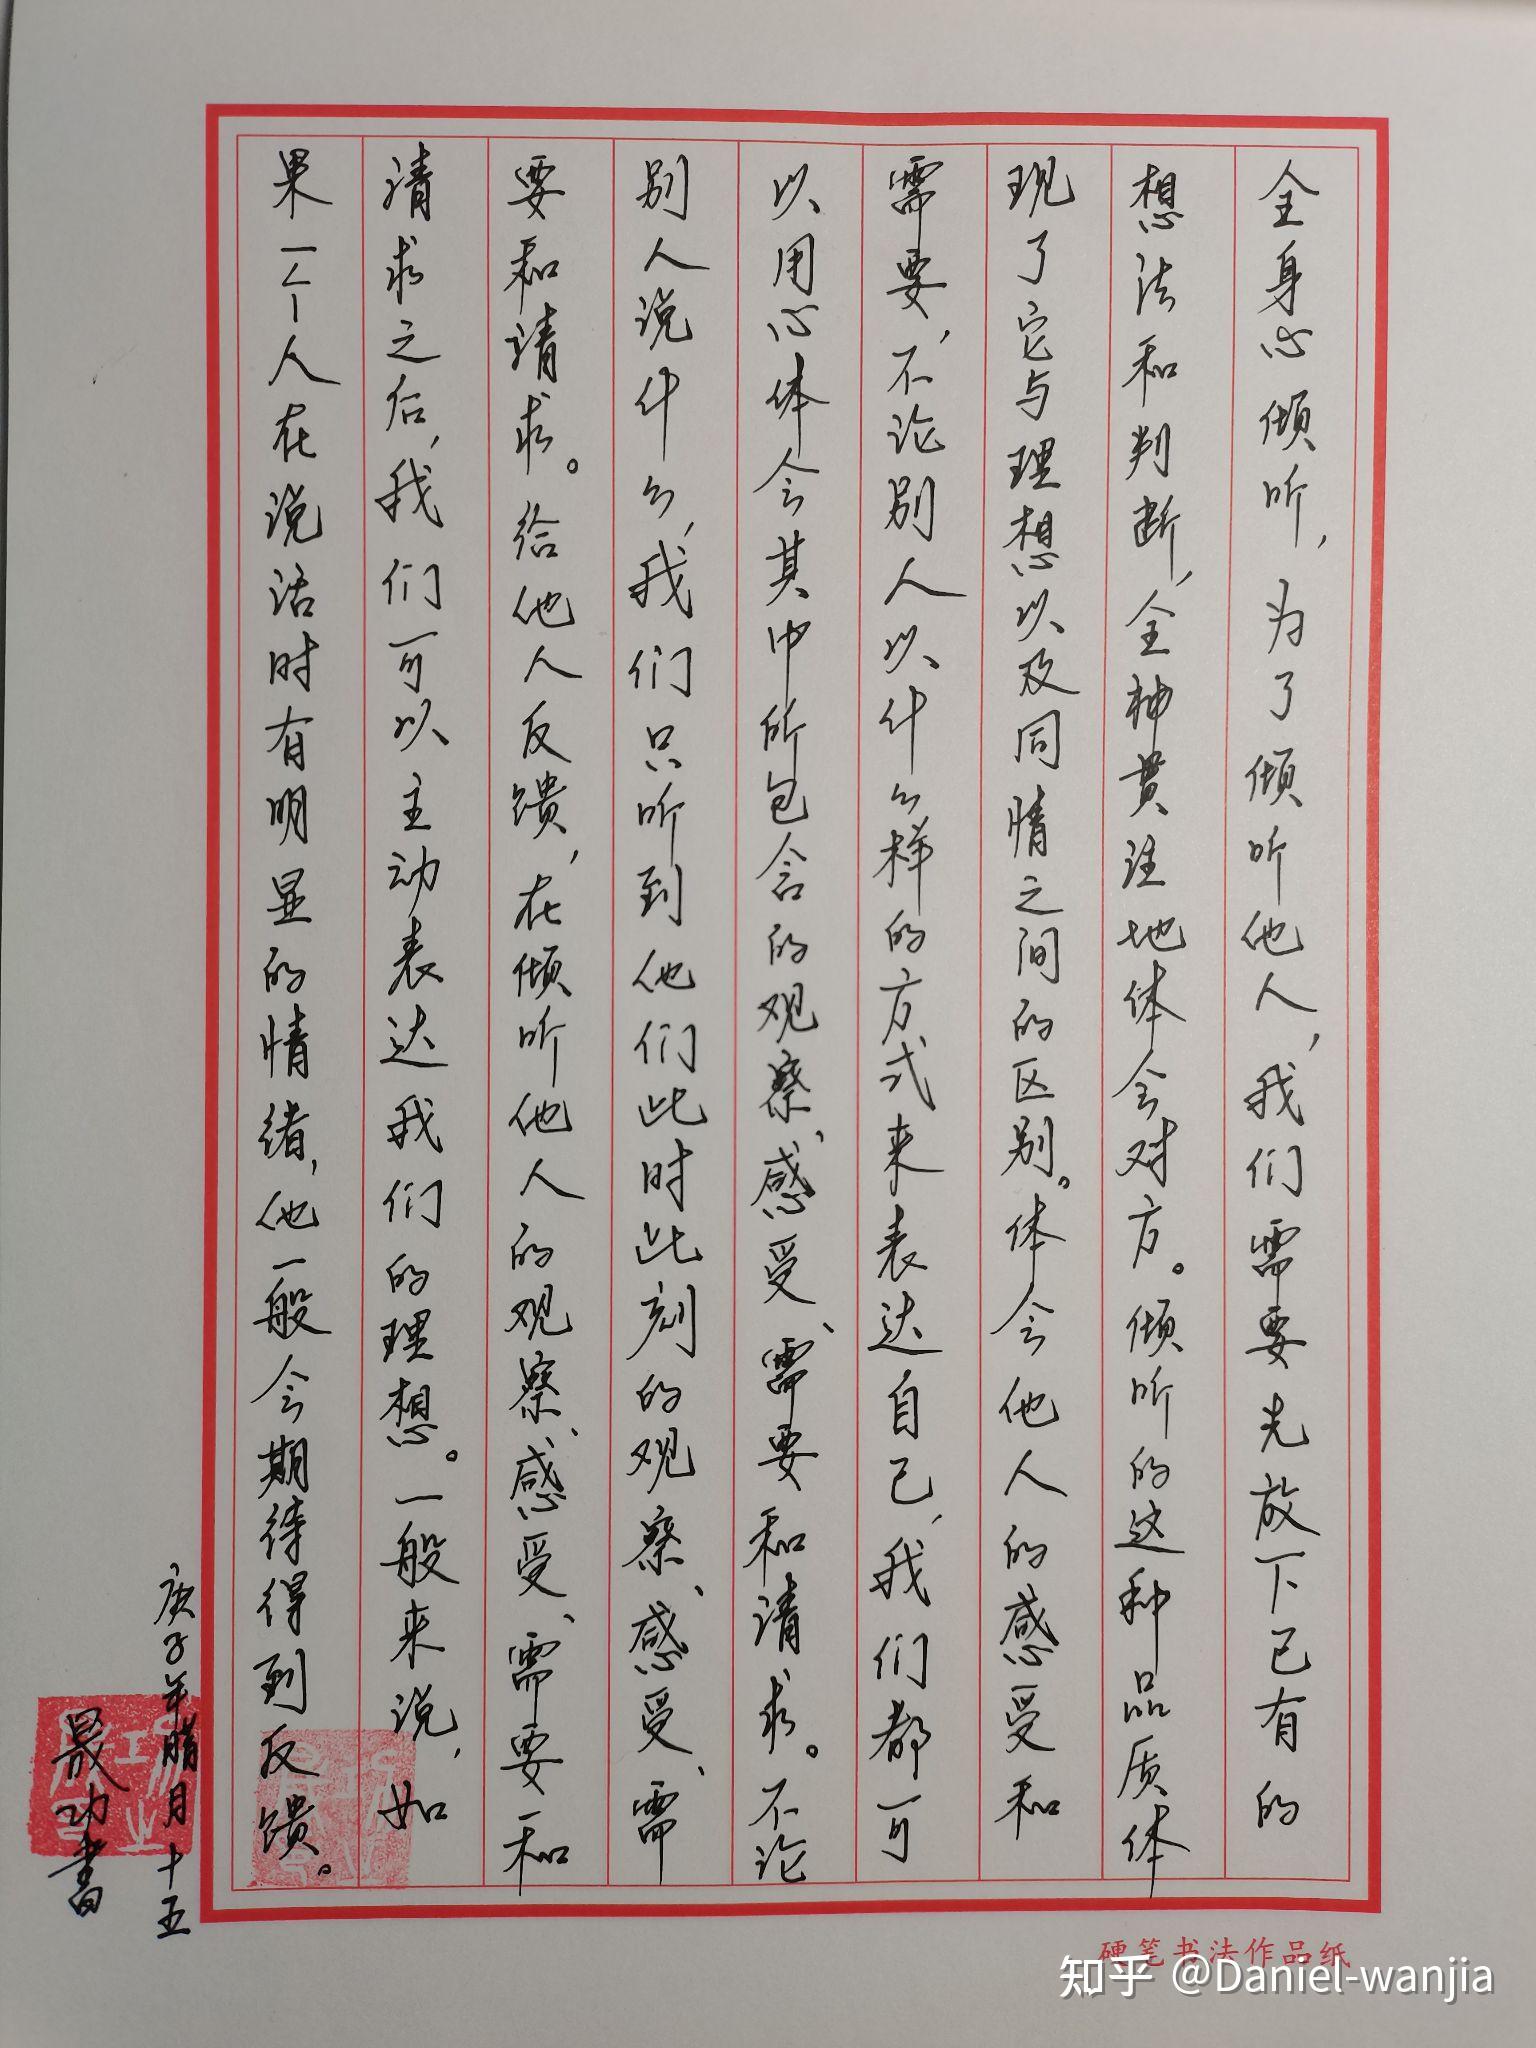 全身心倾听，为了倾听他人，我们需要先放下已有的
想法和判断，全神贯注地体会对方。倾听的这种品质体
现了它与理想以及同情之间的区别。体会他人的感受和
需要，不论别人以什么样的方式来表达自己，我们都可
以用心体会其中所包含的观察、感受、需要和请求。不论
别人说什么，我们只听到他们此时此刻的观察、感受、需
要和请求。给他人反馈，在倾听他人的观察、感受、需要和
请求之后，我们可以主动表达我们的理想。一般来说，如
果一个人在说话时有明显的情绪，他一般会期待得到反馈。
庚子年腊月十五
晟功書
硬笔书法作品纸
知乎 @Daniel-wanjia